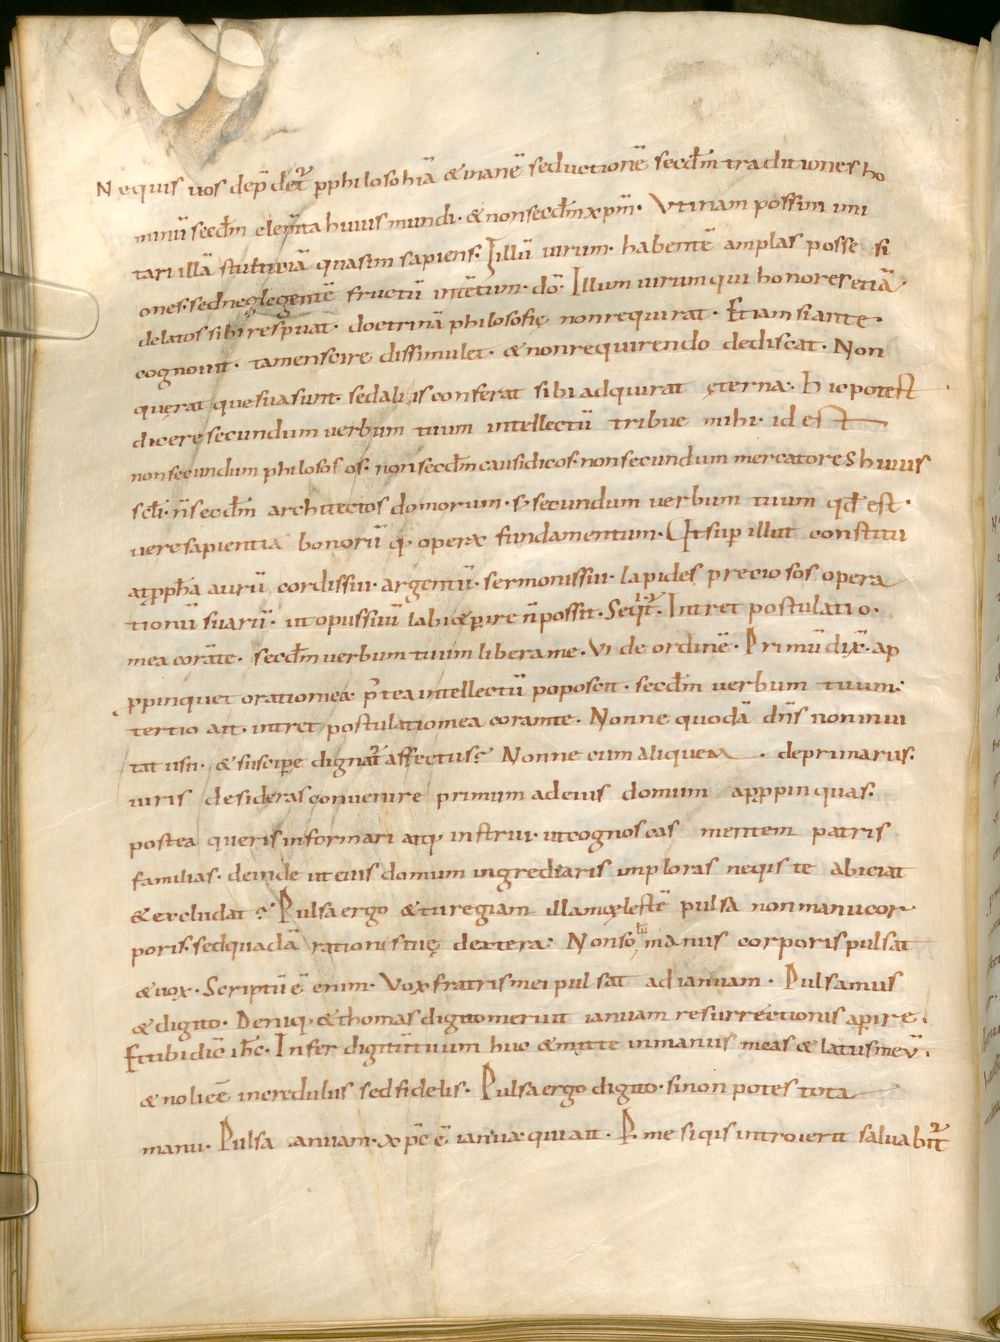 Nequis uos dep̄det᷑ pphilosohiā & inanē seductionē secd̄m traditiones ho
minū secd̄m elem̄ta huius mundi · & nonsecd̄m xpm̄ · Vtinam possim imi
tari illā stultitiā quasim sapiens · Illū uirum · habentē amplas posse si
ones · sedneglegentē fructū intētum · dō · Illum uirum qui honores etiā
delatos sibi respuat · doctrinā philosofię nonrequirat · Etiam siante ·
cognouit · tamenscire dissimulet · & nonrequirendo dediscat · Non
quęrat que sua sunt · sedaliis conferat sibi adquirat ęterna · hic potest
dicere secundum uerbum tuum intellectū tribue mihi · id est
nonsecundum philosofos · nonsecd̄m causidicos · nonsecundum mercatores huius
scłi · n̄secd̄m architectos domorum · s; secundum uerbum tuum qd̄ est ·
uere sapientia bonorū q; operæ fundamentum · Ut sup illut constitu
at pph̄a aurū cordissui · argentū · sermonissui · lapides preciosos opera
tionū suarū · ut opussuū labi & perire n̄ possit · Seqit᷑ · Intret postulatio ·
mea corāte · secd̄m uerbum tuum libera me · Vide ordinē · Primū dix̄ · ap
ppinquet oratiomea · p̄ tea intellectū poposcit · secd̄m uerbum tuum ·
tertio ait · intret postulatiomea coramte · Nonne quodā dn̄s non inui
tat usu · & suscipe dignat᷑ affectus? Nonne cum aliquem · deprimarus ·
uiris desideras conuenire primum adeius domum appropinquas ·
postea queris informari atq; instrui · utcognoscas mentem patris
familias · deinde ut eius domum ingrediaris imploras neqis te abiciat
& excludat? Pulsa ergo & tu regiam illam cęlestē pulsa non manu cor
poris · sedquadā rationis tuę dextera · Nonsolū manus corporis pulsat
& uox · Scriptū ē enim · Vox fratris mei pulsat ad ianuam · Pulsamus
& digito · Deniq; & thomas digito meruit ianuam resurrectionis aperire ·
Et ubi dic̄ ih̄c · Infer digitūtuum huc & mitte in manus meas & latusmeū ·
& noli eē incredulus sed fidelis · Pulsa ergo digito · sinon potes tota
manu · Pulsa ianuam · & xpc̄ ē ianua qui ait · P me siqis introierit saluabit᷑